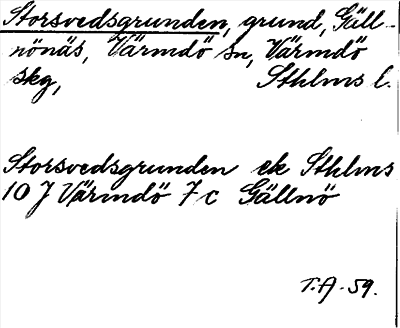 Storsvedsgrunden, grund, Gäll-
nönäs, Värmdö sn, Värmdö
skg, Sthlms l.
Storsvedsgrunden ek Sthlms
10 J Värmdö 7 c Gällnö
T.A. 59.